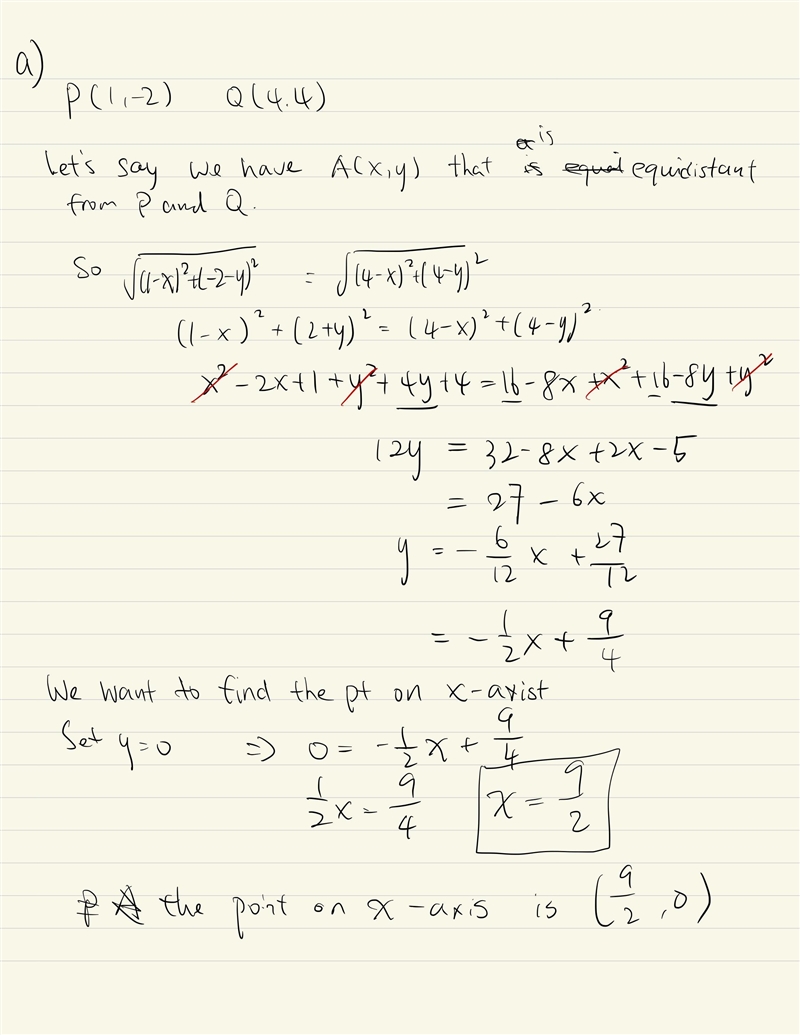 a)
P(1,-2) Q(4.4)
is
Let's say we have A(x,y) that is equal equidistant
from P and Q.
So √(1-x)²+(-2-y)² = √(4-x)²+(4-y)²
(1-x)² + (2+y)² = (4-x)² + (4-y)²
x² - 2x + 1 + y² + 4y + 4 = 16 - 8x + x² + 16 - 8y + y²
12y = 32 - 8x + 2x - 5
= 27 - 6x
y = - 6/12 x + 27/12
= - 1/2 x + 9/4
We want to find the pt on x-axist
Set y=0 ⇒ 0 = - 1/2 x + 9/4
1/2 x = 9/4 x = 9/2
the point on x-axis is (9/2, 0)